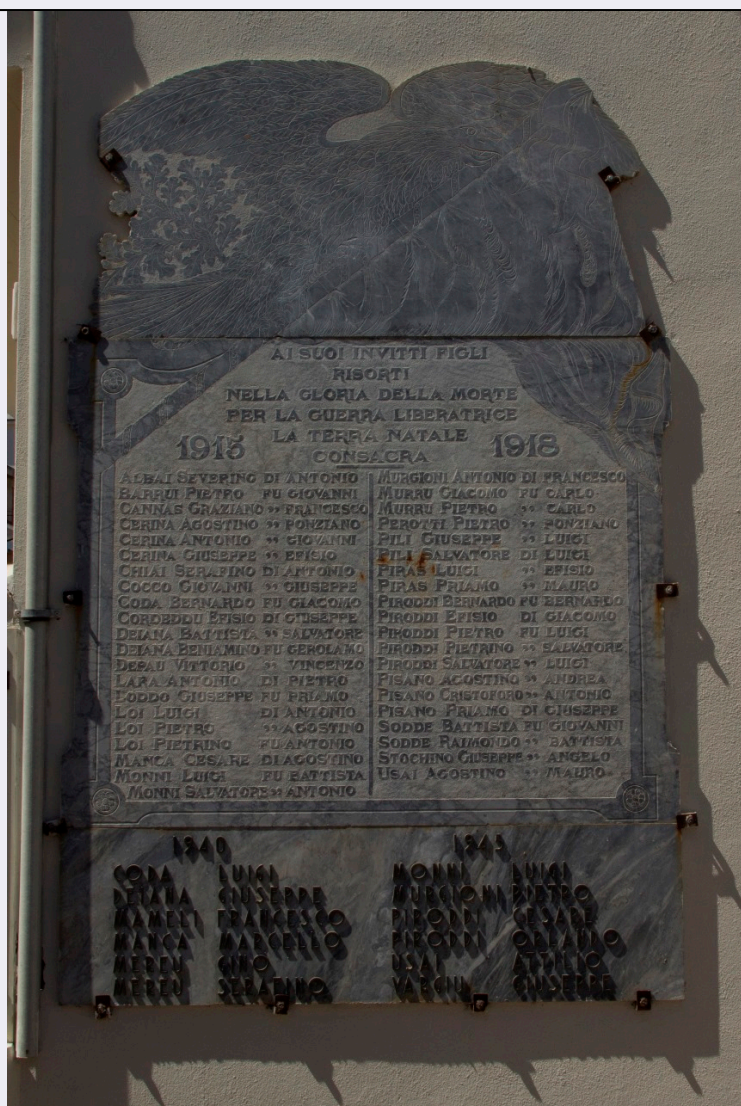 AI SUOI INVITTI FIGLI
RISORTI
NELLA GLORIA DELLA MORTE
PER LA GUERRA LIBERATRICE
LA TERRA NATALE
1915 CONSACRA 1918
ALBAI SEVERINO DI ANTONIO
BARRUI PIETRO FU GIOVANNI
CANNAS GRAZIANO " FRANCESCO
CERINA AGOSTINO " PONZIANO
CERINA ANTONIO " GIOVANNI
CERINA GIUSEPPE " EFISIO
CHIAI SERAFINO DI ANTONIO
COCCO GIOVANNI " GIUSEPPE
CODA BERNARDO FU GIACOMO
CORDEDDU EFISIO DI GIUSEPPE
DEIANA BATTISTA " SALVATORE
DEIANA BENIAMINO FU GEROLAMO
DEPAU VITTORIO " VINCENZO
LARA ANTONIO DI PIETRO
LODDO GIUSEPPE FU PRIAMO
LOI LUIGI DI ANTONIO
LOI PIETRO " AGOSTINO
LOI PIETRINO FU ANTONIO
MANCA CESARE DI AGOSTINO
MONNI LUIGI FU BATTISTA
MONNI SALVATORE " ANTONIO
MURGIONI ANTONIO DI FRANCESCO
MURRU GIACOMO FU CARLO
MURRU PIETRO " CARLO
PEROTTI PIETRO " PONZIANO
PILI GIUSEPPE " LUIGI
PILI SALVATORE DI LUIGI
PIRAS LUIGI " EFISIO
PIRAS PRIAMO " MAURO
PIRODDI BERNARDO FU BERNARDO
PIRODDI EFISIO DI GIACOMO
PIRODDI PIETRO FU LUIGI
PIRODDI PIETRINO " SALVATORE
PIRODDI SALVATORE " LUIGI
PISANO AGOSTINO " ANDREA
PISANO CRISTOFORO " ANTONIO
PISANO PRIAMO DI GIUSEPPE
SODDE BATTISTA FU GIOVANNI
SODDE RAIMONDO " BATTISTA
STOCHINO GIUSEPPE " ANGELO
USAI AGOSTINO " MAURO
1940 1945
CODA LUIGI
DEIANA GIUSEPPE
MAMELI FRANCESCO
MANCA MARCELLO
MEREU GINO
MEREU SERAFINO
MONNI LUIGI
MURGIONI PIETRO
PIRODDI CESARE
PIRODDI ORLANDO
USAI ATTILIO
VARGIU GIUSEPPE